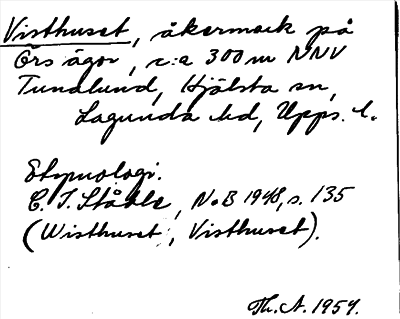 Visthuset, åkermark på
Örs ägor, c:a 300 m NNV
Tunalund, Hjälsta sn,
Lagunda hd, Upps. l.
Etymologi.
C. I. Ståhle, NoB 1948, s. 135
(Wisthuset, Visthuset).
Th. A. 1954.